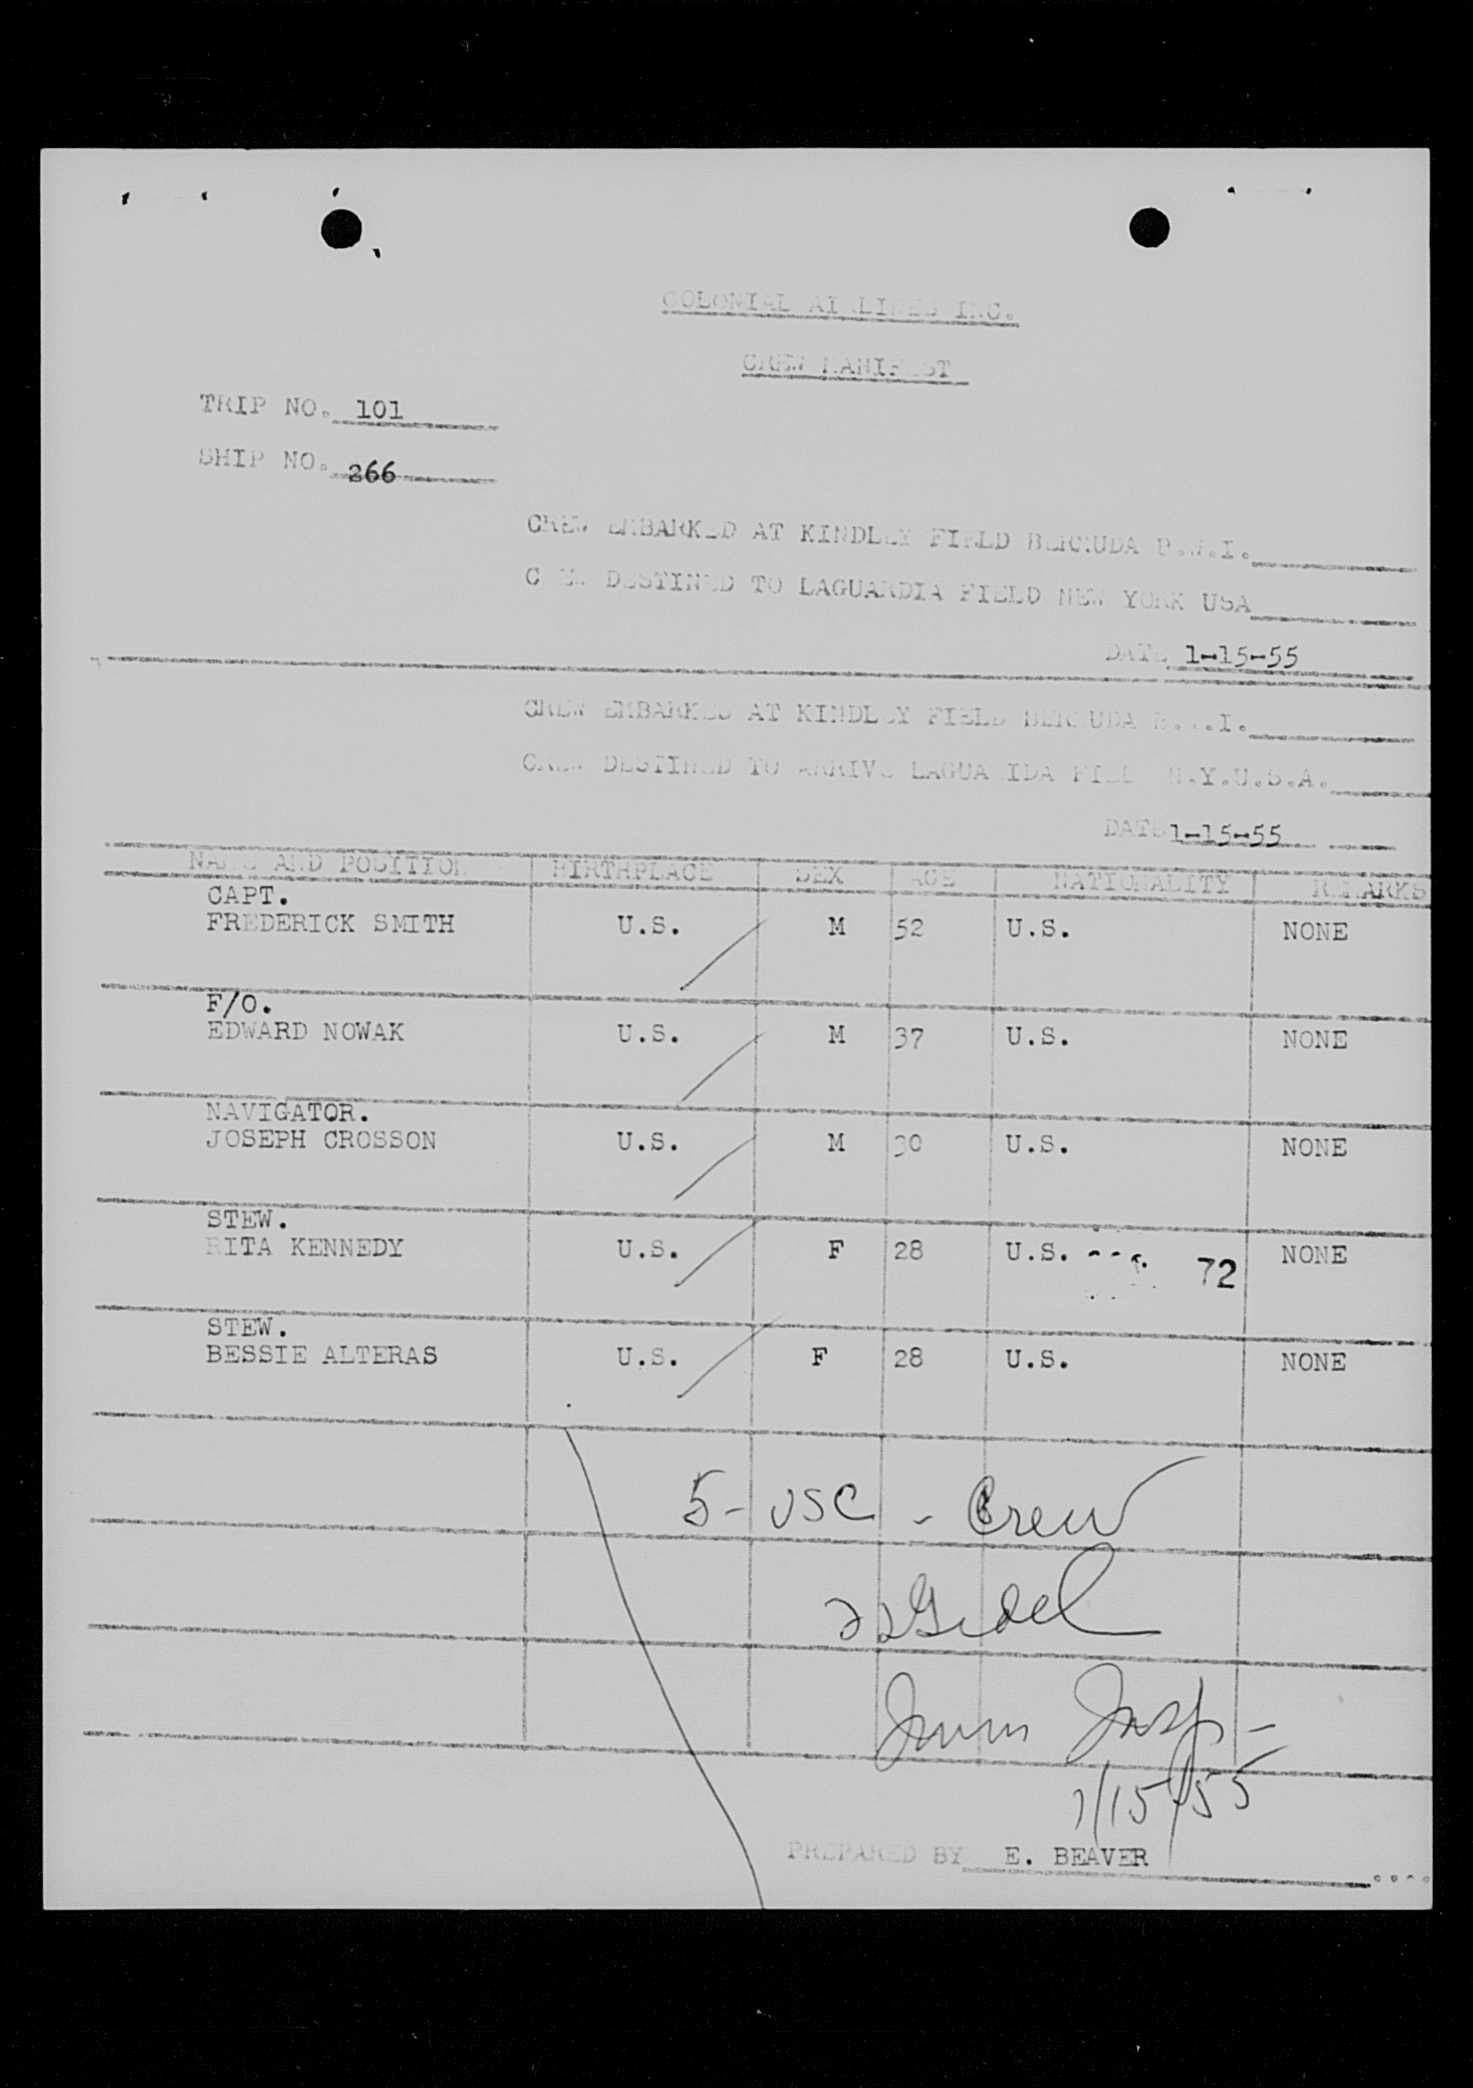 COLONIAL AIRLINES INC.
CREW MANIFEST
TRIP NO. 101
SHIP NO. 266
CREW EMBARKED AT KINDLEY FIELD BERMUDA B.W.I.
CREW DESTINED TO LAGUARDIA FIELD NEW YORK USA
DATE 1-15-55
CREW EMBARKED AT KINDLEY FIELD BERMUDA B.W.I.
CREW DESTINED TO ARRIVE FIELD N.Y.U.S.A.
DATE 1-15-55
NAME AND POSITION BIRTHPLACE SEX AGE NATIONALITY REMARKS
CAPT.
FREDERICK SMITH U.S. M 52 U.S. NONE
F/O.
EDWARD NOWAK U.S. M 37 U.S. NONE
NAVIGATOR.
JOSEPH CROSSON U.S. M 30 U.S. NONE
STEW.
RITA KENNEDY U.S. F 28 U.S. 72 NONE
STEW.
BESSIE ALTERAS U.S. F 28 U.S. NONE
5 - USC - Crew
Imm Insp -
1/15/55
PREPARED BY E. BEAVER